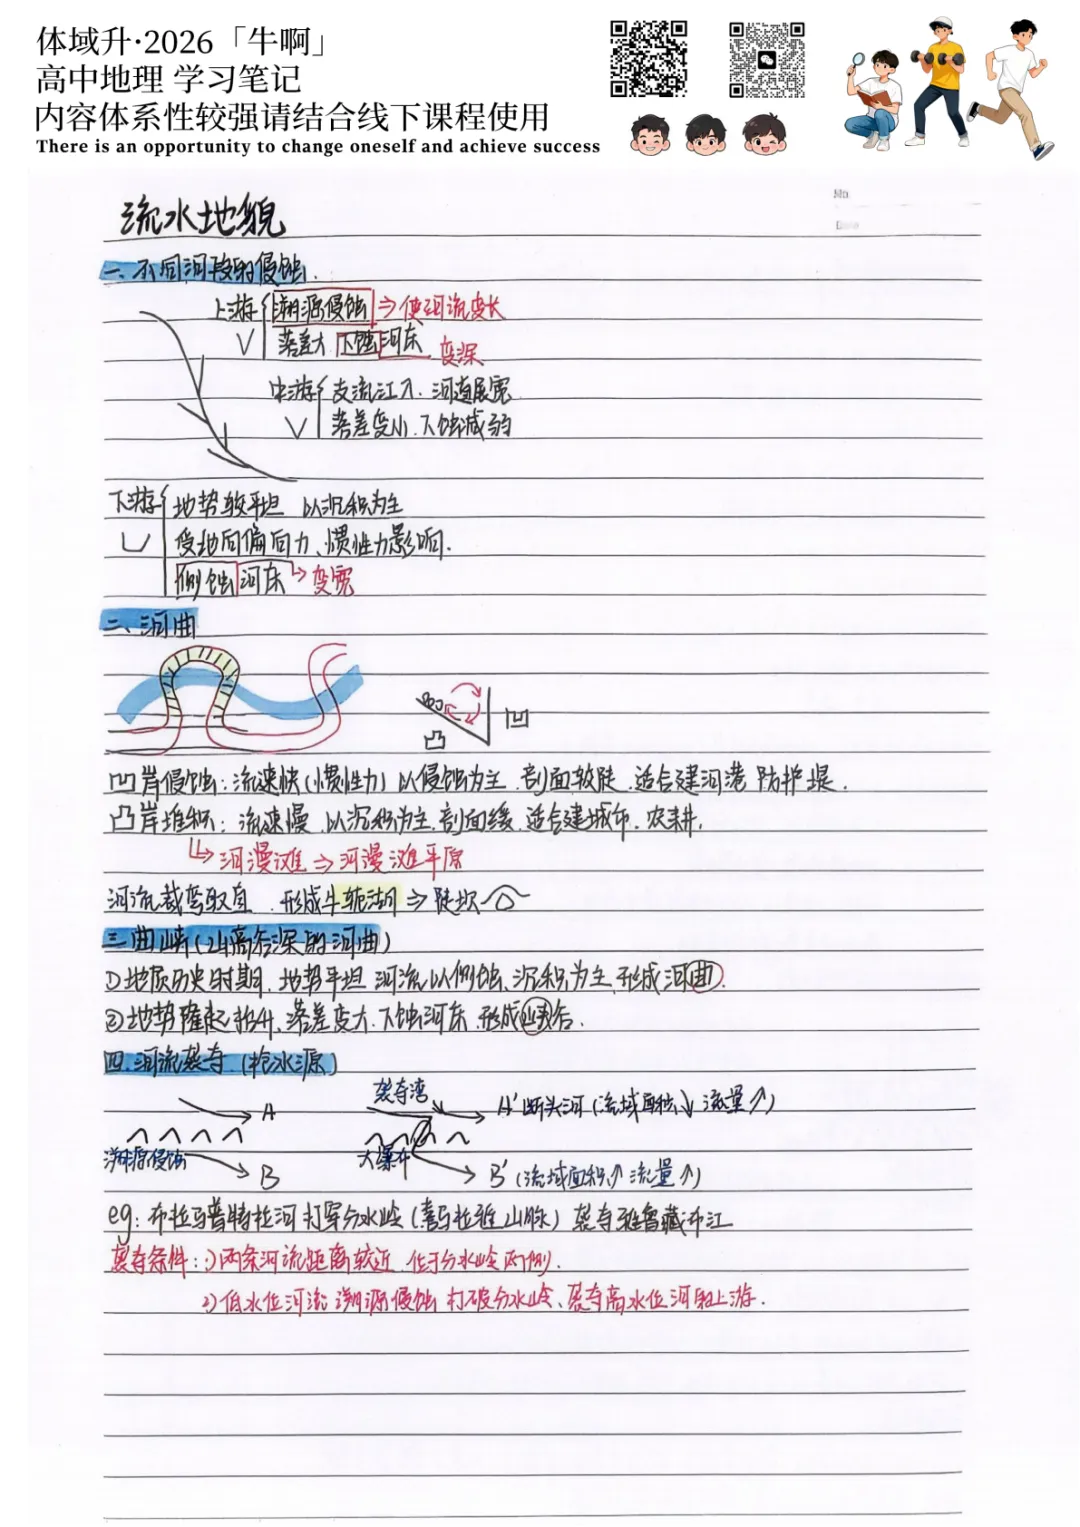 体域升·2026「牛啊」
高中地理 学习笔记
内容体系性较强请结合线下课程使用
There is an opportunity to change oneself and achieve success
No
Date
流水地貌
一、不同河段的侵蚀.
上游 溯源侵蚀 ⇒使河流变长
V 落差大 下蚀河床 变深
中游 支流汇入. 河道展宽
V 落差变小.下蚀减弱
下游 地势较平坦 以沉积为主
受地向偏向力、惯性力影响.
侧蚀河床→变宽
二、河曲
凹
凸
凹岸侵蚀:流速快(惯性力)以侵蚀为主.剖面较陡.适合建河港 防护堤.
凸岸堆积:流速慢.以沉积为主.剖面缓.适合建城市.农耕.
河漫滩⇒河漫滩平原
河流裁弯取直.形成牛轭湖⇒陡坎
三.曲峡(山高谷深的河曲)
①地质历史时期.地势平坦 河流以侧蚀、沉积为主.形成河曲.
②地势隆起抬升、落差变大.下蚀河床.形成峡谷.
四.河流袭夺(抢水源)
A 袭夺湾 A'断头河(流域面积↓ 流量↗)
溯源侵蚀 B 大瀑布 B'(流域面积↑ 流量↑)
eg:布拉马普特拉河 打穿分水岭(喜马拉雅山脉)袭夺雅鲁藏布江
袭夺条件:1)两条河流距离较近.位于分水岭两侧.
2)低水位河流 溯源侵蚀 打破分水岭、袭夺高水位河的上游.